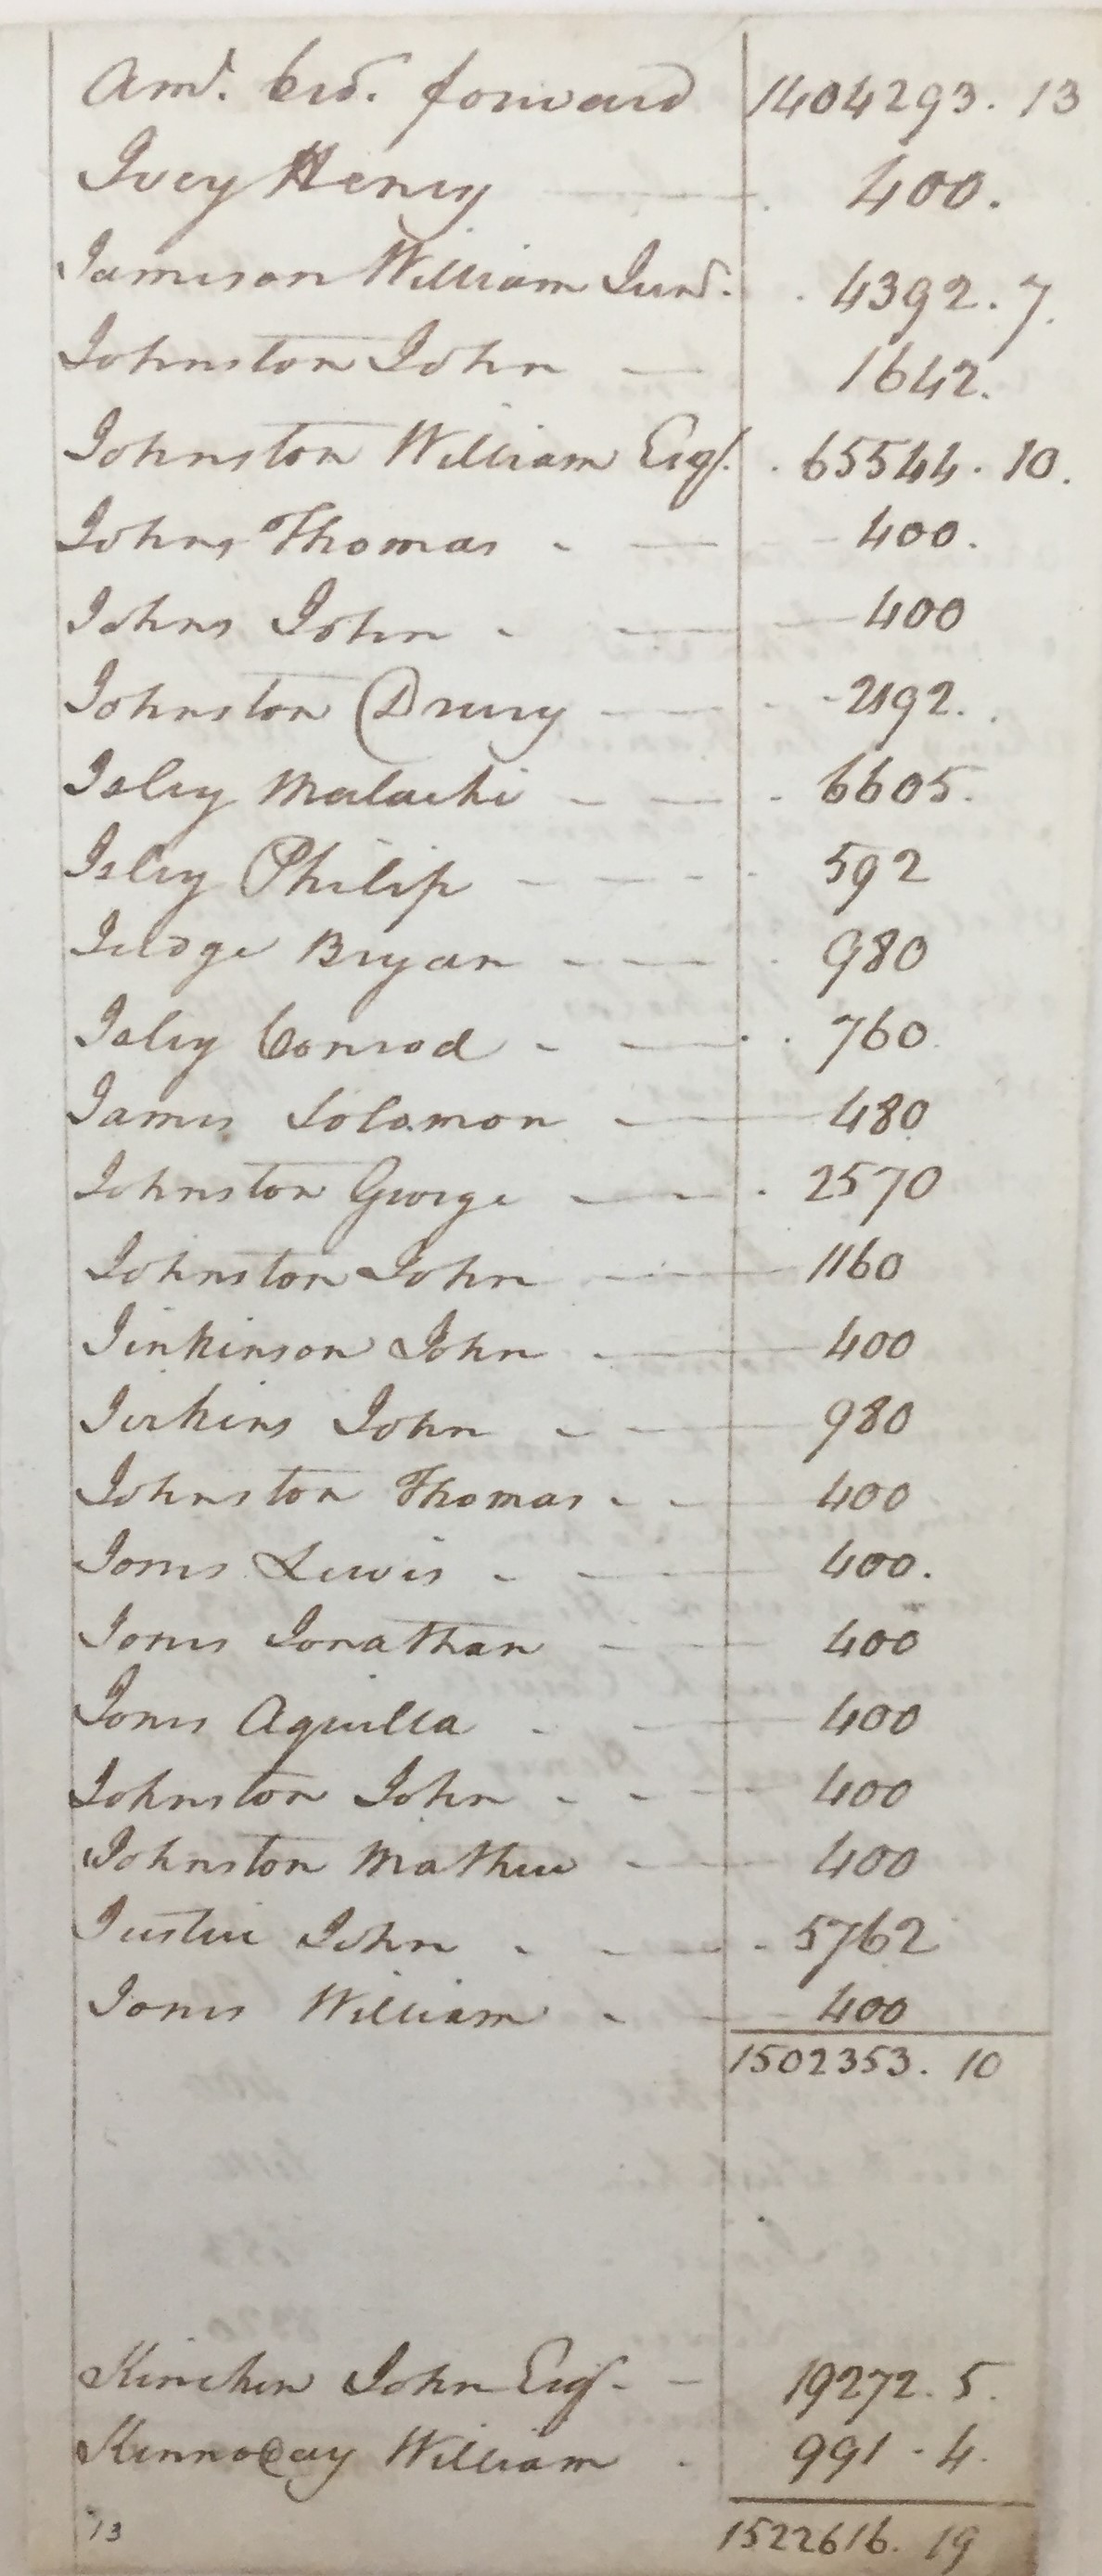 Amt. brd. forward 1404293. 13
Ivey Henry 400.
Jamison William Junr. 4392. 7.
Johnston John 1642.
Johnston William Esqr. 65544. 10.
Johns Thomas 400.
Johns John 400
Johnston Drury 2192.
Isley Malachi 6605.
Isley Philip 592
Judge Bryan 980
Isley Conrod 760
James Solomon 480
Johnston George 2570
Johnston John 1160
Jinkinson John 400
Jirkins John 980
Johnston Thomas 400
Jones Lewis 400.
Jones Jonathan 400
Jones Aquilla 400
Johnston John 400
Johnston Mathew 400
Justice John 5762
Jones William 400
1502353. 10
Kinchen John Esqr. 19272. 5.
Kennaday William 991. 4.
13 1522616. 19